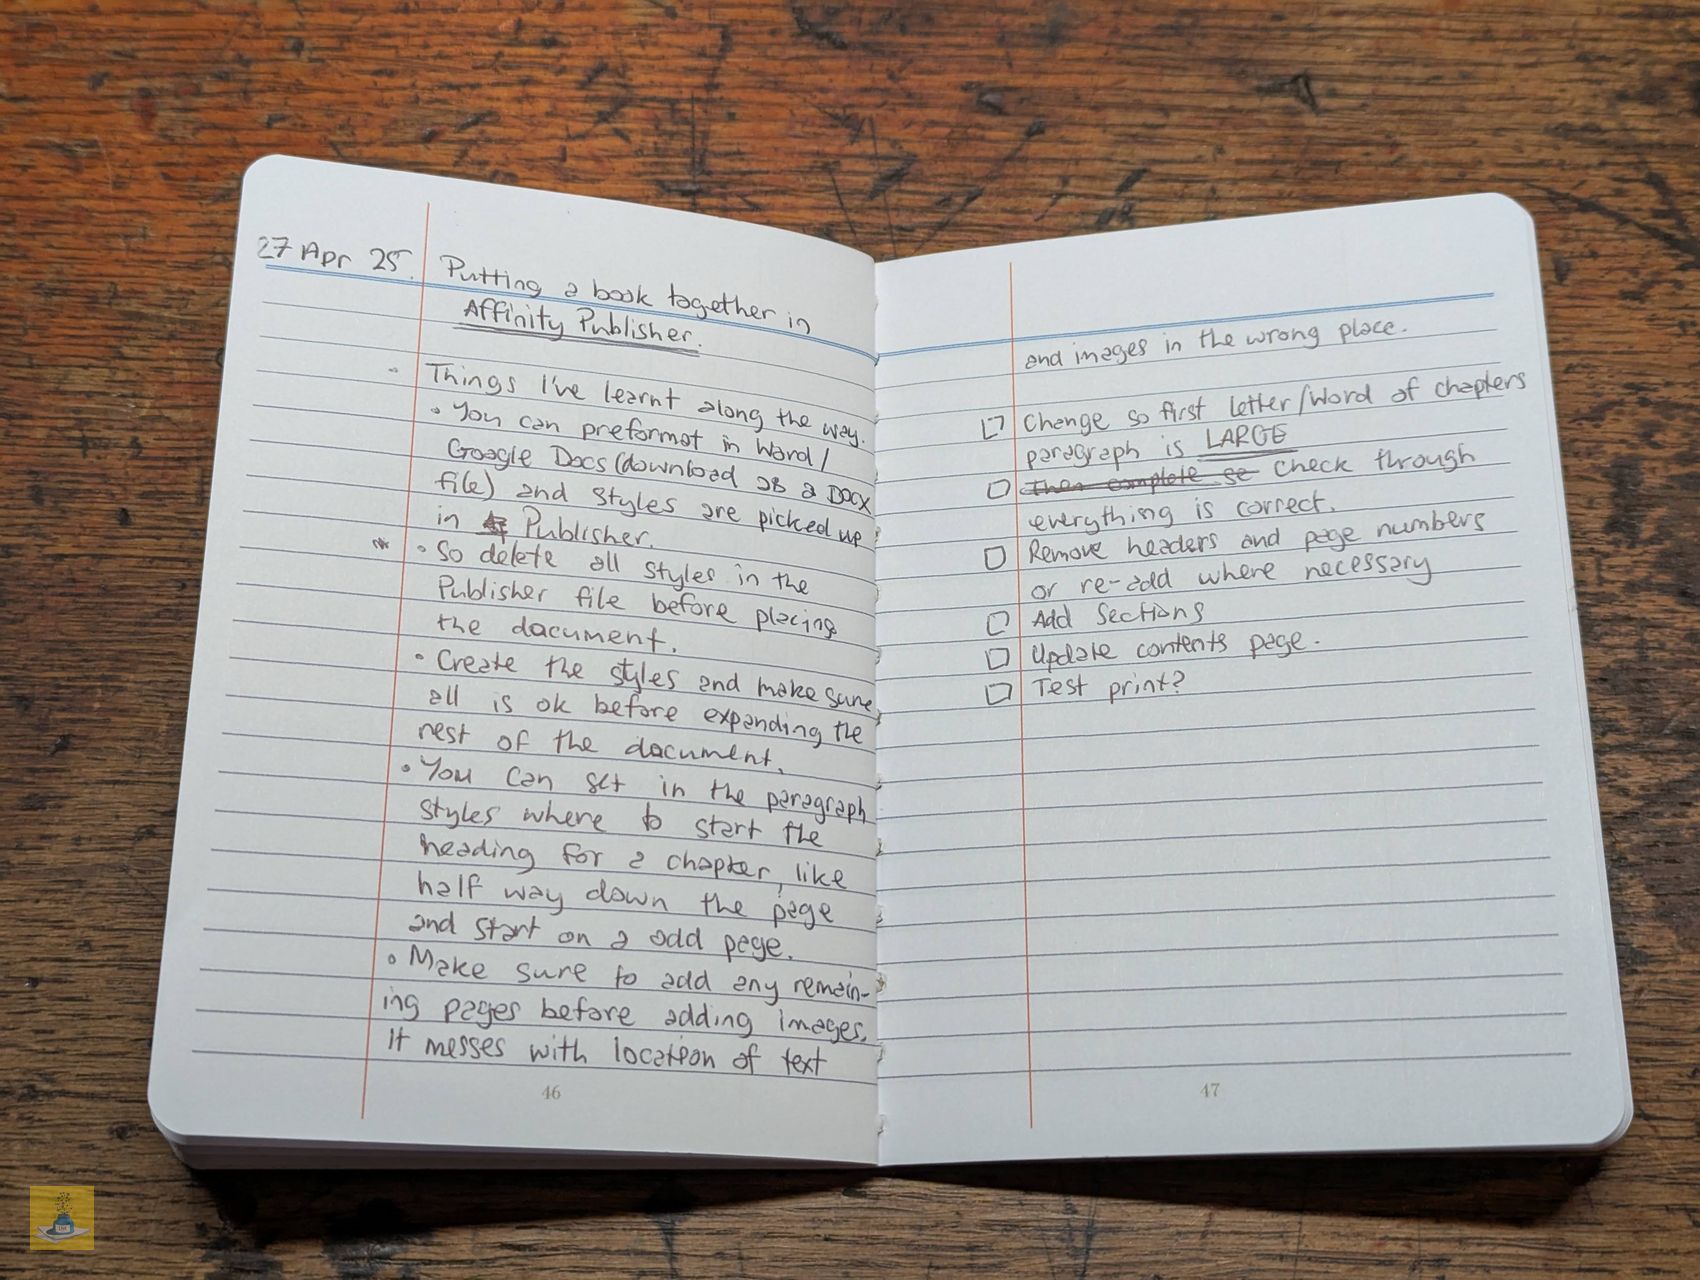 27 Apr 25. Putting a book together in
Affinity Publisher.
- Things I've learnt along the way.
• You can preformat in Word/
Google Docs (download as a DOCX
file) and styles are picked up
in Publisher.
* • So delete all styles in the
Publisher file before placing
the document.
• Create the styles and make sure
all is ok before expanding the
rest of the document.
• You can set in the paragraph
styles where to start the
heading for a chapter, like
half way down the page
and start on a odd page.
• Make sure to add any remain-
ing pages before adding images.
It messes with location of text
46
and images in the wrong place.
☐ Change so first letter/word of chapters
paragraph is LARGE
☐ then complete se check through
everything is correct.
☐ Remove headers and page numbers
or re-add where necessary
☐ Add sections
☐ Update contents page.
☐ Test print?
47